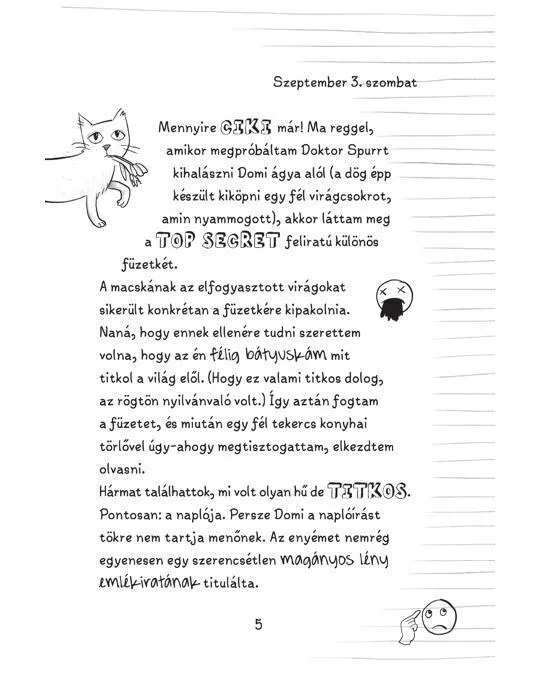 Szeptember 3. szombat
Mennyire CIKI már! Ma reggel,
amikor megpróbáltam Doktor Spurrt
kihalászni Domi ágya alól (a dög épp
készült kiköpni egy fél virágcsokrot,
amin nyammogott), akkor láttam meg
a TOP SECRET feliratú különös
füzetkét.
A macskának az elfogyasztott virágokat
sikerült konkrétan a füzetkére kipakolnia.
Naná, hogy ennek ellenére tudni szerettem
volna, hogy az én félig bátyuskám mit
titkol a világ elől. (Hogy ez valami titkos dolog,
az rögtön nyilvánvaló volt.) Így aztán fogtam
a füzetet, és miután egy fél tekercs konyhai
törlővel úgy-ahogy megtisztogattam, elkezdtem
olvasni.
Hármat találhattok, mi volt olyan hű de TITKOS.
Pontosan: a naplója. Persze Domi a naplóírást
tökre nem tartja menőnek. Az enyémet nemrég
egyenesen egy szerencsétlen magányos lény
emlékiratának titulálta.
5